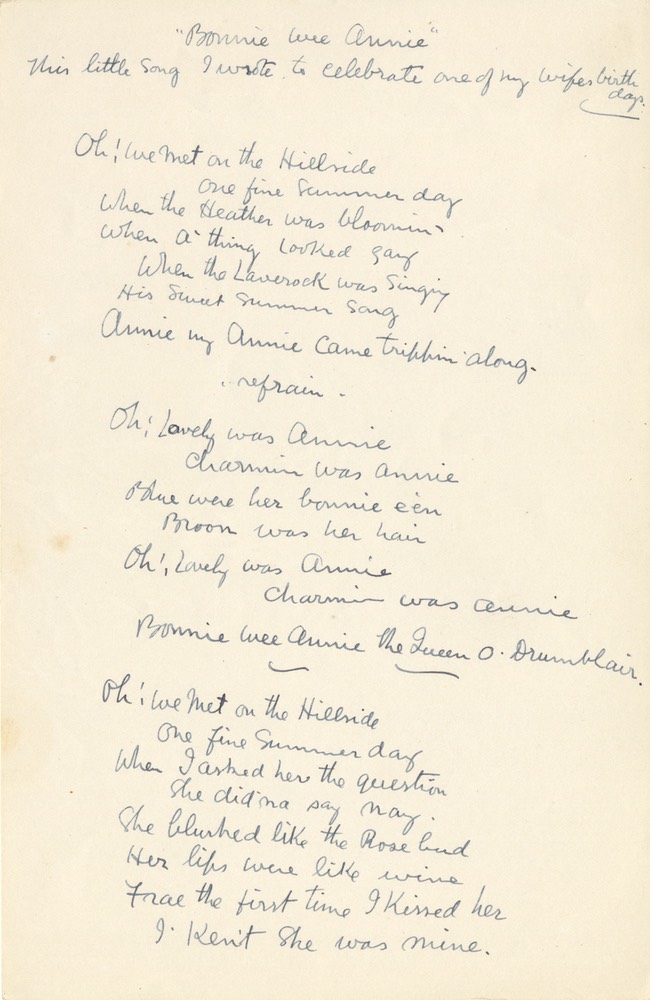 "Bonnie wee Annie"
This little song I wrote to celebrate one of my wifes birth
days.
Oh! we met on the Hillside
one fine Summer day
When the Heather was bloomin
When A' thing looked gay
When the Laverock was Singing
His Sweet Summer Song
Annie my Annie Came trippin along.
refrain.
Oh! Lovely was Annie
Charmin was annie
Blue were her bonnie een
Broon was her hair
Oh! Lovely was Annie
Charmin was annie
Bonnie wee Annie the Queen O' Drumblair.
Oh! we Met on the Hillside
One fine Summer day
When I asked her the question
She didna say nay.
She blushed like the Rose bud
Her lips were like wine
Frae the first time I Kissed her
I Ken't She was mine.